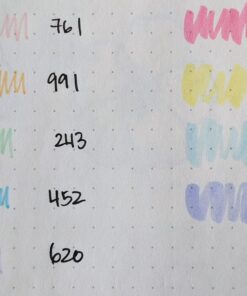 761
991
243
452
620